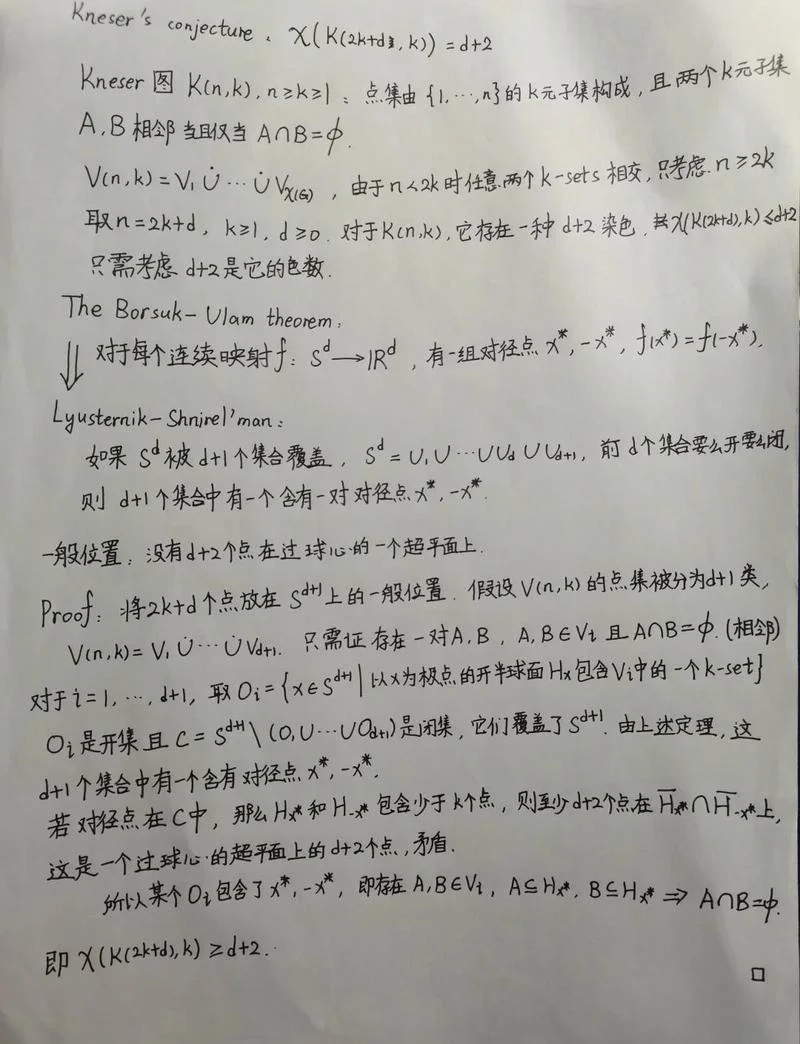 Kneser's conjecture. χ(K(2k+d, k)) = d+2
Kneser图 K(n,k), n≥k≥1: 点集由{1,…,n}的k元子集构成, 且两个k元子集
A, B相邻当且仅当 A∩B=ϕ.
V(n,k) = V₁ ∪̇ ⋯ ∪̇ V_χ(G), 由于n<2k时任意两个k-sets相交, 只考虑 n≥2k
取n=2k+d, k≥1, d≥0. 对于K(n,k), 它存在一种d+2染色, χ(K(2k+d),k)≤d+2
只需考虑 d+2是它的色数.
The Borsuk-Ulam theorem:
⇓ 对于每个连续映射f: S^d→ℝ^d, 有一组对径点 x*, -x*, f(x*)=f(-x*).
Lyusternik-Shnirel'man:
如果 S^d被d+1个集合覆盖, S^d = U₁∪⋯∪U_d∪U_{d+1}, 前d个集合要么开要么闭,
则 d+1个集合中有一个含有一对对径点x*, -x*.
一般位置: 没有d+2个点在过球心的一个超平面上.
Proof: 将2k+d个点放在S^{d+1}上的一般位置. 假设V(n,k)的点集被分为d+1类,
V(n,k)=V₁ ∪̇ ⋯ ∪̇ V_{d+1}. 只需证存在一对A,B, A,B∈V_i且A∩B=ϕ. (相邻)
对于i=1, ⋯, d+1, 取O_i={x∈S^{d+1}|以x为极点的开半球面H_x包含V_i中的一个k-set}
O_i是开集且 C=S^{d+1}\(O₁∪⋯∪O_{d+1})是闭集, 它们覆盖了S^{d+1}. 由上述定理, 这
d+1个集合中有一个含有对径点 x*, -x*.
若对径点在C中, 那么H_{x*}和H_{-x*}包含少于k个点, 则至少d+2个点在H̅_{x*}∩H̅_{-x*}上,
这是一个过球心的超平面上的d+2个点, 矛盾.
所以某个O_i包含了x*, -x*, 即存在A,B∈V_i, A⊆H_{x*}, B⊆H_{x*} ⇒ A∩B=ϕ.
即 χ(K(2k+d),k)≥d+2.
□